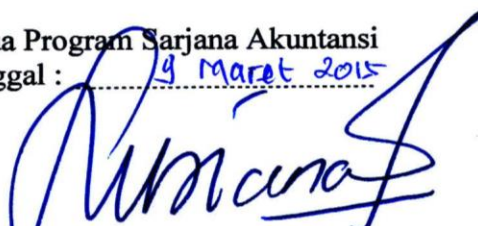 a Program Sarjana Akuntansi
ggal : 9 Maret 2015